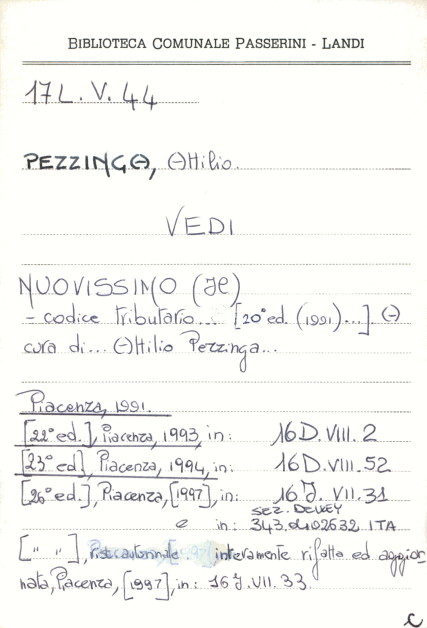 BIBLIOTECA COMUNALE PASSERINI - LANDI
17 L. V. 44
PEZZINGA, Attilio.
VEDI
NUOVISSIMO (Il)
- codice tributario... [20ª ed. (1991)...]. A
cura di... Attilio Pezzinga...
Piacenza, 1991.
[22ª ed.], Piacenza, 1993, in: 16 D. VIII. 2
[23ª ed], Piacenza, 1994, in: 16 D. VIII. 52
[26ª ed.], Piacenza, [1997], in: 16 J. VII. 31
SEZ. DEWEY
e in: 343.0402632 ITA
[" "], interamente rifatta ed aggior
nata, Piacenza, [1997], in: 16 J. VII. 33.
C